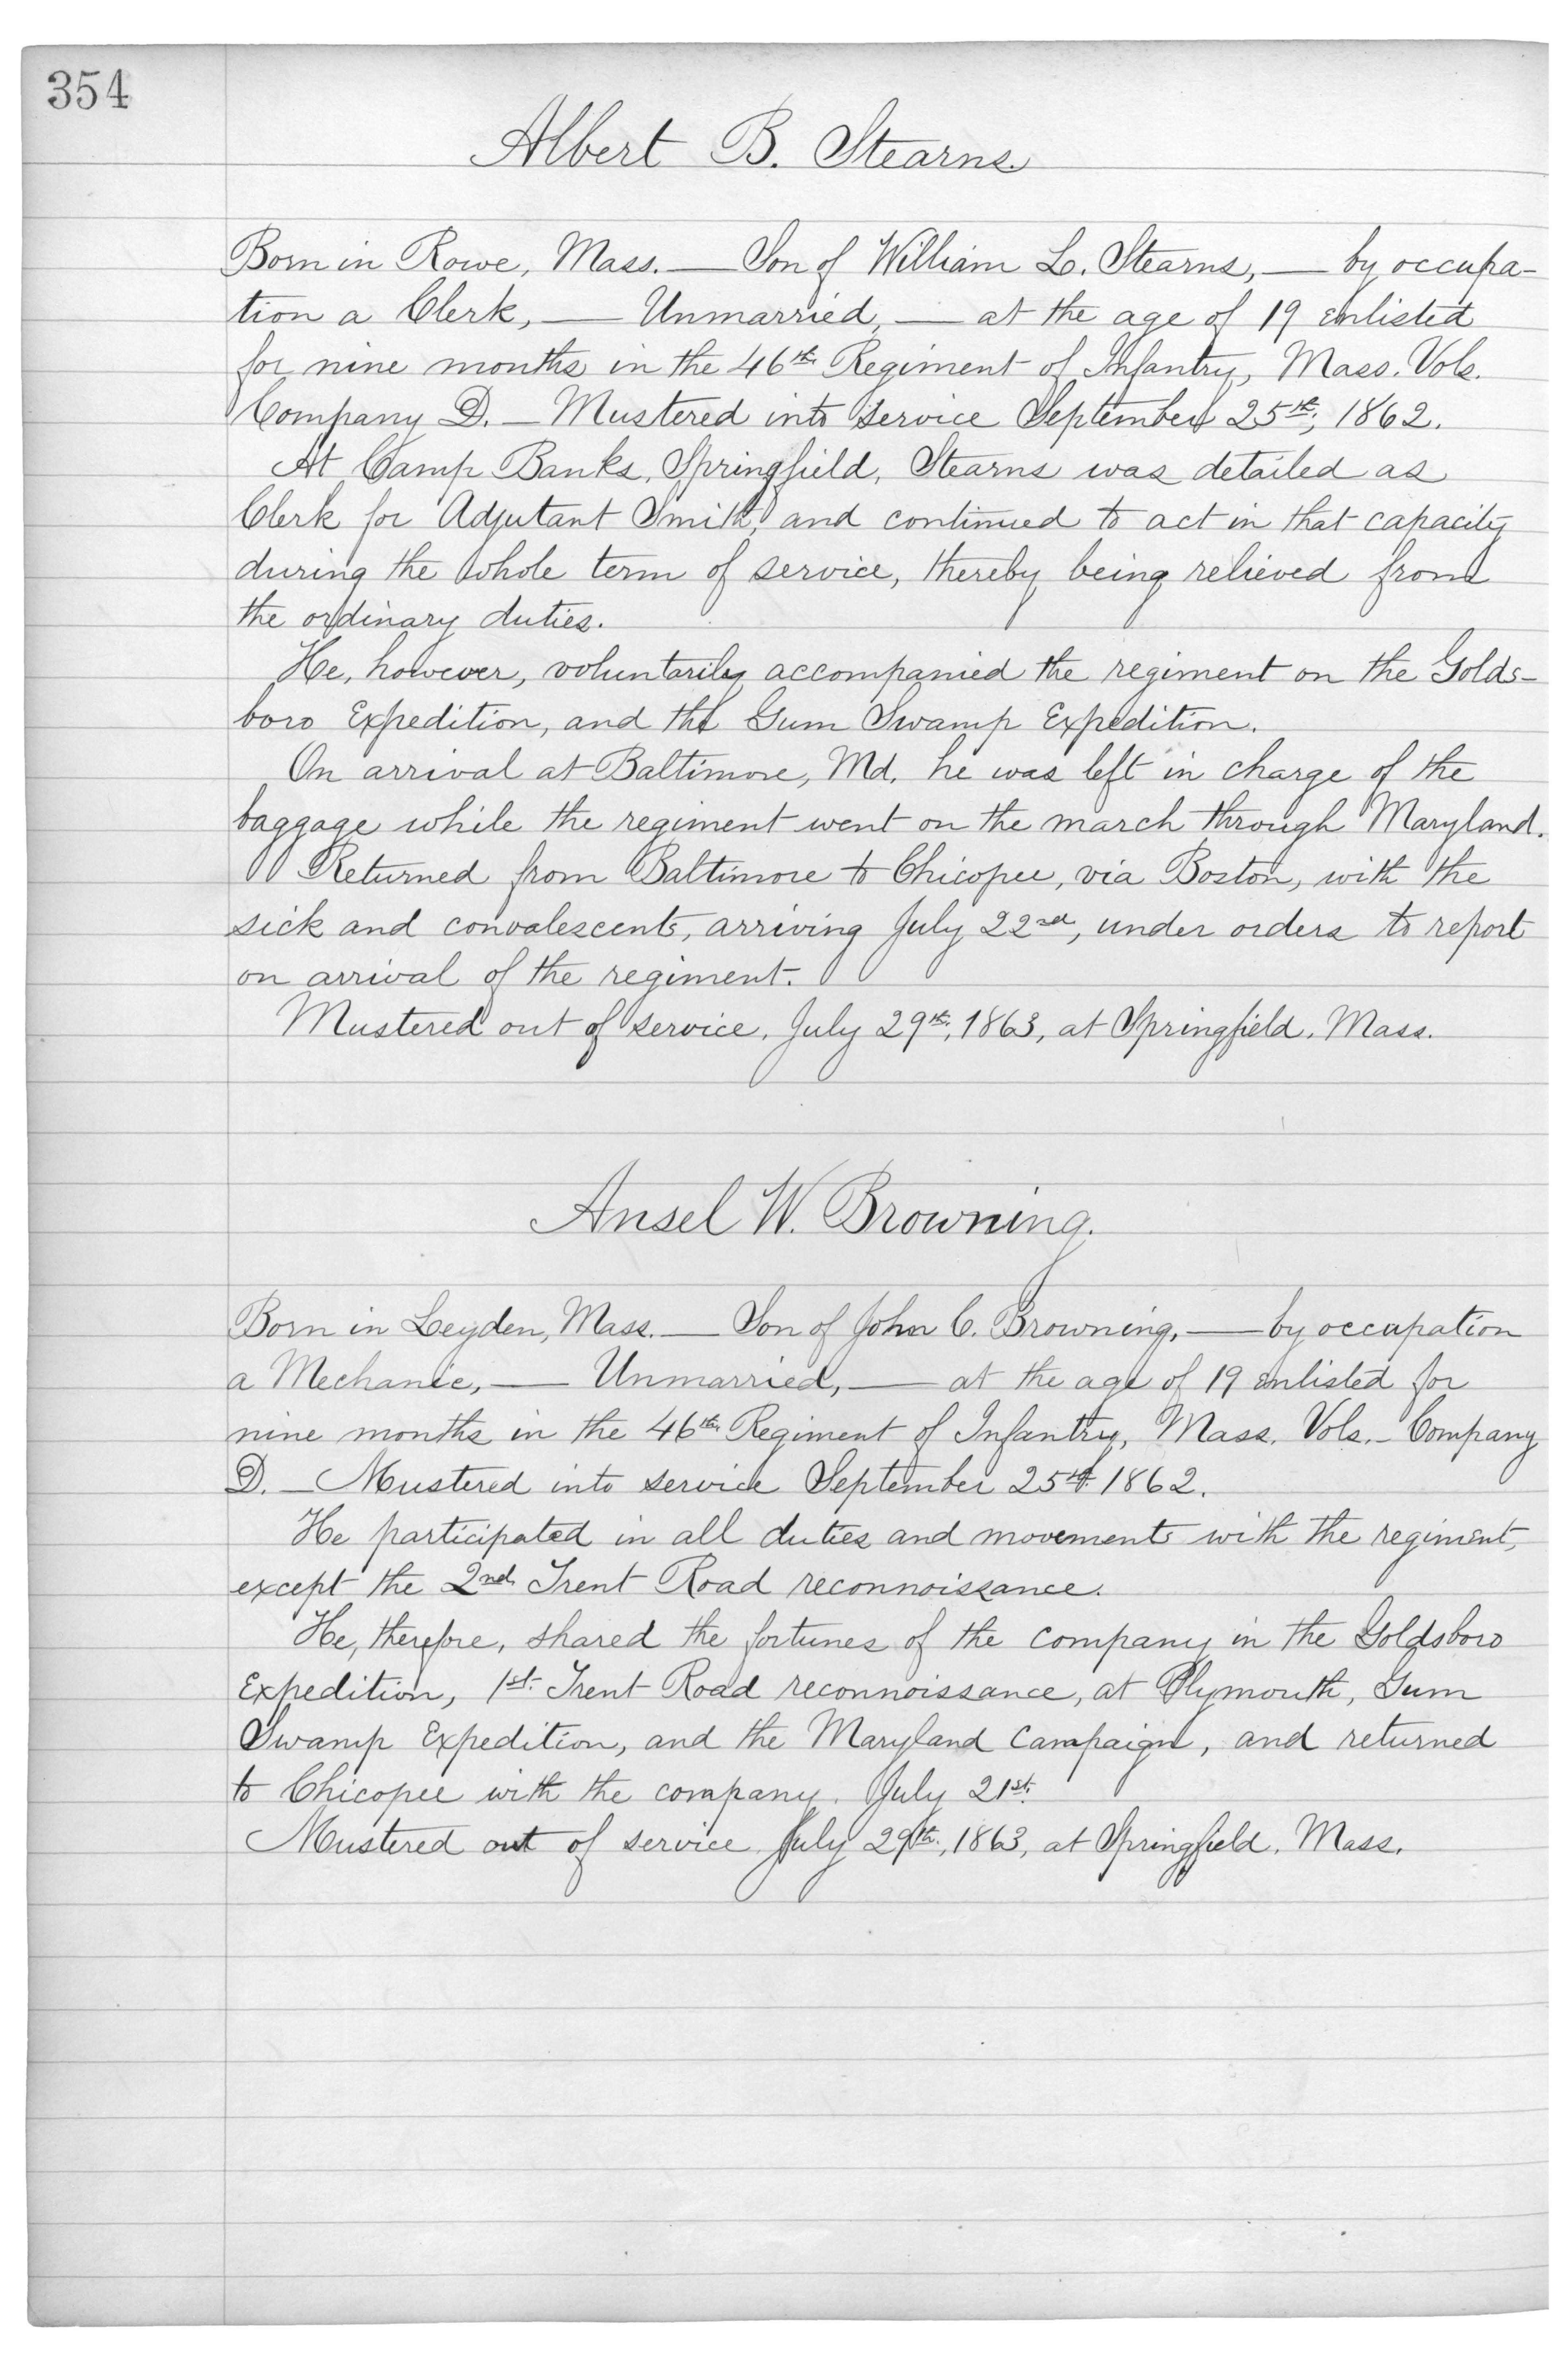 354
Albert B. Stearns.
Born in Rowe, Mass. — Son of William L. Stearns, — by occupa-
tion a Clerk, — Unmarried, — at the age of 19 enlisted
for nine months in the 46th Regiment of Infantry, Mass. Vols.
Company D. — Mustered into service September 25th, 1862.
At Camp Banks, Springfield, Stearns was detailed as
Clerk for Adjutant Smith, and continued to act in that capacity
during the whole term of service, thereby being relieved from
the ordinary duties.
He, however, voluntarily accompanied the regiment on the Golds-
boro Expedition, and the Gum Swamp Expedition.
On arrival at Baltimore, Md. he was left in charge of the
baggage while the regiment went on the march through Maryland.
Returned from Baltimore to Chicopee, via Boston, with the
sick and convalescents, arriving July 22nd, under orders to report
on arrival of the regiment.
Mustered out of service, July 29th, 1863, at Springfield, Mass.
Ansel W. Browning.
Born in Leyden, Mass. — Son of John C. Browning, — by occupation
a Mechanic, — Unmarried, — at the age of 19 enlisted for
nine months in the 46th Regiment of Infantry, Mass. Vols. - Company
D. — Mustered into service September 25th 1862.
He participated in all duties and movements with the regiment,
except the 2nd Trent Road reconnoissance.
He, therefore, shared the fortunes of the company in the Goldsboro
Expedition, 1st Trent Road reconnoissance, at Plymouth, Gum
Swamp Expedition, and the Maryland Campaign, and returned
to Chicopee with the company, July 21st.
Mustered out of service July 29th, 1863, at Springfield, Mass.